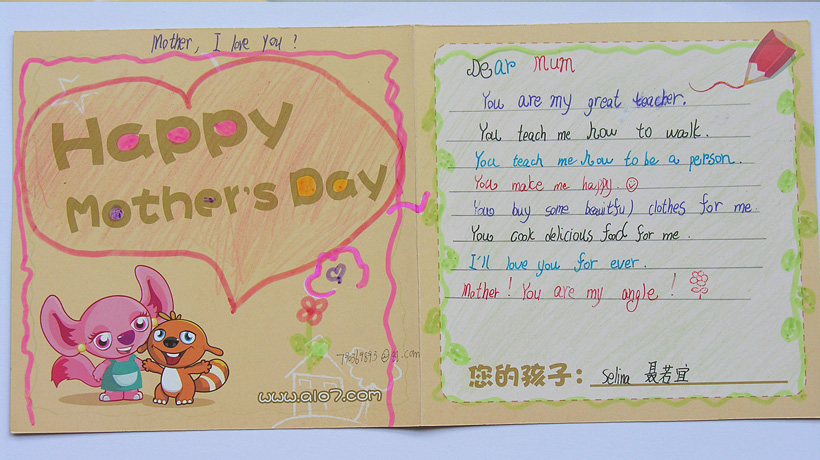 Mother, I love you?
Happy
Mother's Day
www.alo7.com
Dear Mum
You are my great teacher.
You teach me how to walk.
You teach me how to be a person.
You make me happy.
You buy some beauitful clothes for me.
You cook delicious food for me.
I'll love you for ever.
Mother! You are my angle!
您的孩子: Selina 聂若宜